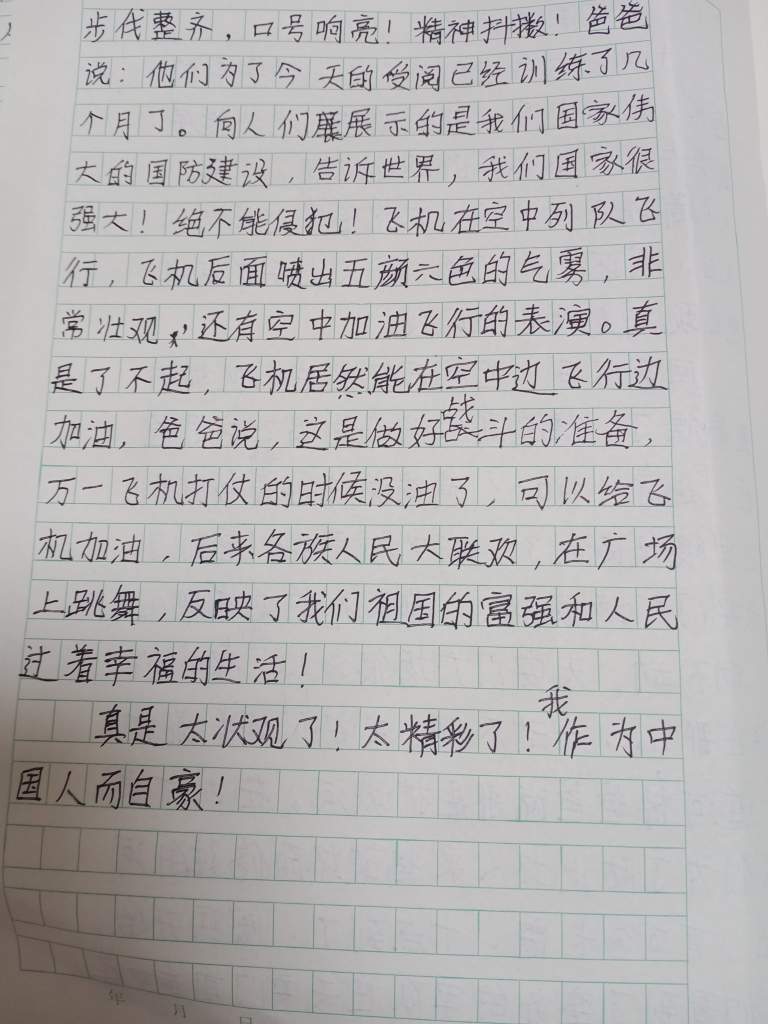 步伐整齐，口号响亮！精神抖擞！爸爸
说：他们为了今天的受阅已经训练了几
个月了。向人们展示的是我们国家伟
大的国防建设，告诉世界，我们国家很
强大！绝不能侵犯！飞机在空中列队飞
行，飞机后面喷出五颜六色的气雾，非
常壮观，还有空中加油飞行的表演。真
是了不起，飞机居然能在空中边飞行边
加油，爸爸说，这是做好战斗的准备，
万一飞机打仗的时候没油了，可以给飞
机加油，后来各族人民大联欢，在广场
上跳舞，反映了我们祖国的富强和人民
过着幸福的生活！
真是太状观了！太精彩了！我作为中
国人而自豪！
年 月 日